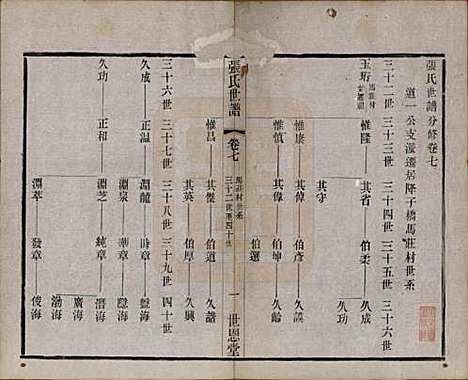 張氏世譜分修卷七
道一公支派遷居降子橋馬莊村世系
三十二世 三十三世 三十四世 三十五世 三十六世
玉珩 惟隆 其省 伯柔 久成
久功
其守
惟康 其倬 伯彥 久謨
惟慎 其偉 伯坤 久齡
伯選
惟昌 其傑 伯道 久譜
其英 伯厚 久興
張氏世譜 卷七 馬莊村世系 三十二世至四十世 一 世恩堂
三十六世 三十七世 三十八世 三十九世 四十世
久成 正溫 淵龍 時章 盤海
淵泉 華章 隱海
久功 正和 淵芝 純章 潛海
廣海
渤海
淵萃 發章 俊海